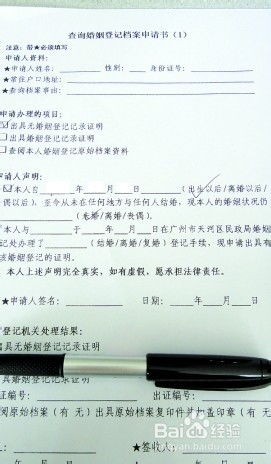 查询婚姻登记档案申请书（1）
注意：带★必须填写
申请人资料：
★申请人姓名：　　性别：　　身份证号：
★常住户口地址：
★查询档案事由：
申请办理的项目：
☑出具无婚姻登记记录证明
□出具有婚姻登记记录证明
□查阅本人婚姻登记原始档案资料
申请人声明：
☑本人自　　年　　月　　日（出生以后/离婚以后/
偶以后），至今从未在任何地方与任何人结婚，现本人的婚姻状况仍
（未婚/离婚/丧偶）。
□本人与　　于　　年　　月　　日在广州市天河区民政局婚姻
记处办理了　　（结婚/离婚/复婚）登记手续，现申请出具有
该婚姻登记记录证明。
本人上述声明完全真实，如有虚假，愿承担法律责任。
★申请人签名：　　日期：　　年　　月　　日
登记机关处理结果：
具无婚姻登记记录证明
具有婚姻登记记录证明
证编号：　　出证编号：
阅原始档案（有 无）出具原始档案复印件并加盖印章（有 无
★签收人：
年　　月　　日　　年　　月
Baidu 经验